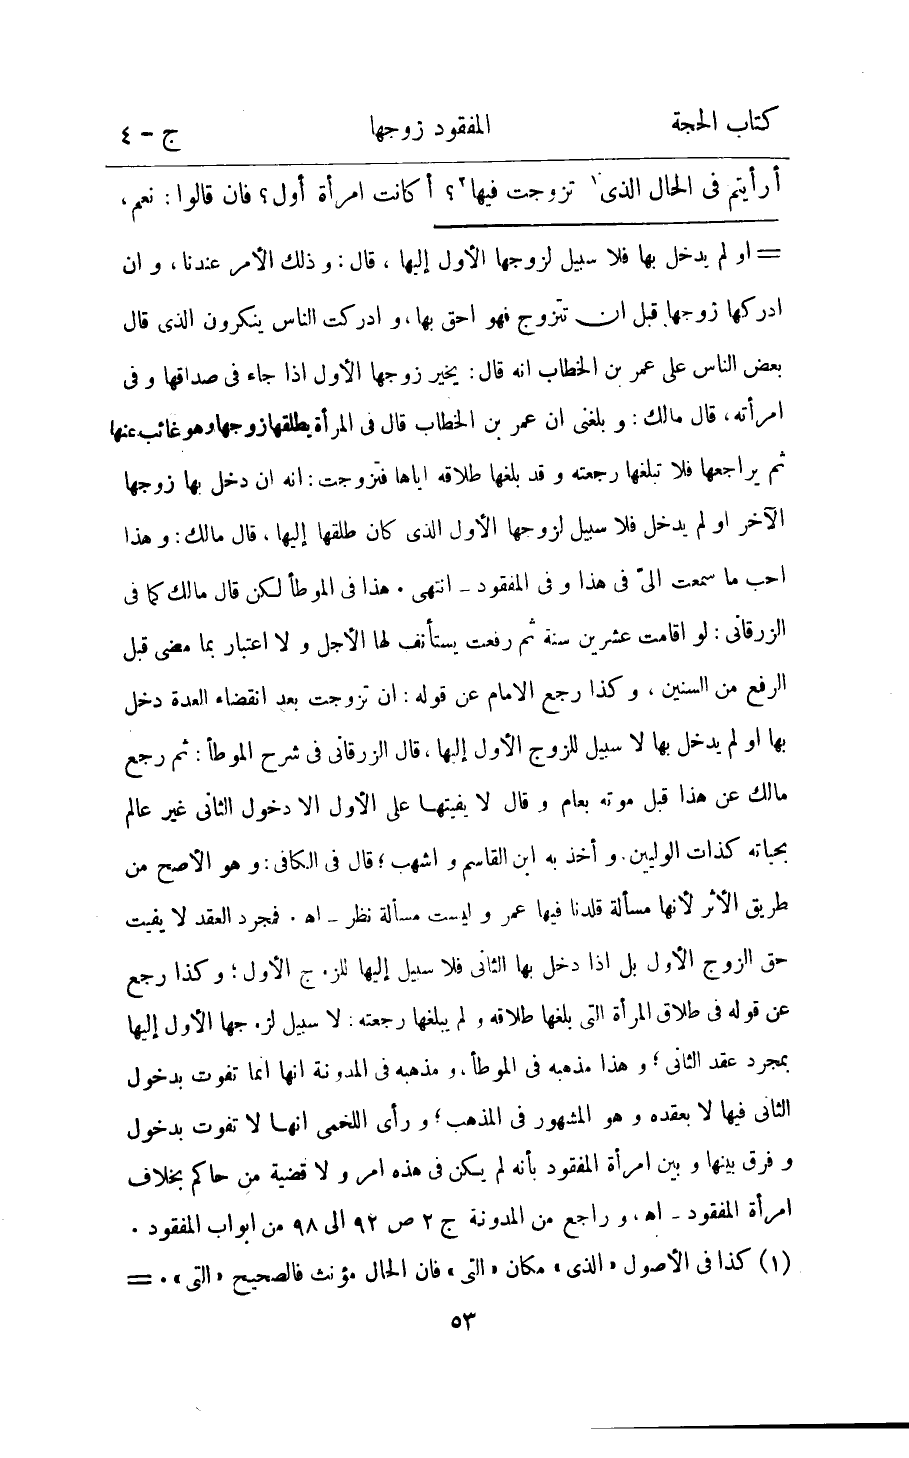 كتاب الحجة المفقود زوجها ج - ٤
أرأيتم فى الحال الذى١ تزوجت فيها٢؟ أكانت امرأة أول؟ فان قالوا: نعم،
= او لم يدخل بها فلا سبيل لزوجها الأول إليها، قال: و ذلك الأمر عندنا، و ان
ادركها زوجها قبل ان تتزوج فهو احق بها، و ادركت الناس ينكرون الذى قال
بعض الناس على عمر بن الخطاب انه قال: يخير زوجها الأول اذا جاء فى صداقها و فى
امرأته، قال مالك: و بلغنى ان عمر بن الخطاب قال فى المرأة يطلقها زوجها وهو غائب عنها
ثم يراجعها فلا تبلغها رجعته و قد بلغها طلاقه اياها فتزوجت: انه ان دخل بها زوجها
الآخر او لم يدخل فلا سبيل لزوجها الأول الذى كان طلقها إليها، قال مالك: و هذا
احب ما سمعت الىّ فى هذا و فى المفقود ـ انتهى . هذا فى الموطأ لكن قال مالك كما فى
الزرقانى: لو اقامت عشرين سنة ثم رفعت يستأنف لها الأجل و لا اعتبار بما مضى قبل
الرفع من السنين، و كذا رجع الامام عن قوله: ان تزوجت بعد انقضاء العدة دخل
بها او لم يدخل بها لا سبيل للزوج الأول إليها، قال الزرقانى فى شرح الموطأ: ثم رجع
مالك عن هذا قبل موته بعام و قال لا يفيتها على الأول الا دخول الثانى غير عالم
بحياته كذات الوليين. و أخذ به ابن القاسم و اشهب؛ قال فى الكافى: و هو الأصح من
طريق الأثر لأنها مسألة قلدنا فيها عمر و ليست مسألة نظر ـ اه . فمجرد العقد لا يفيت
حق الزوج الأول بل اذا دخل بها الثانى فلا سبيل إليها للزوج الأول؛ و كذا رجع
عن قوله فى طلاق المرأة التى بلغها طلاقه و لم يبلغها رجعته: لا سبيل لزوجها الأول إليها
بمجرد عقد الثانى؛ و هذا مذهبه فى الموطأ، و مذهبه فى المدونة انها انما تفوت بدخول
الثانى فيها لا بعقده و هو المشهور فى المذهب؛ و رأى اللخمى انها لا تفوت بدخول
و فرق بينها و بين امرأة المفقود بأنه لم يكن فى هذه امر و لا قضية من حاكم بخلاف
امرأة المفقود ـ اه، و راجع من المدونة ج ٢ ص ٩٢ الى ٩٨ من ابواب المفقود .
(١) كذا فى الأصول «الذى» مكان «التى» فان الحال مؤنث فالصحيح «التى» . =
٥٣